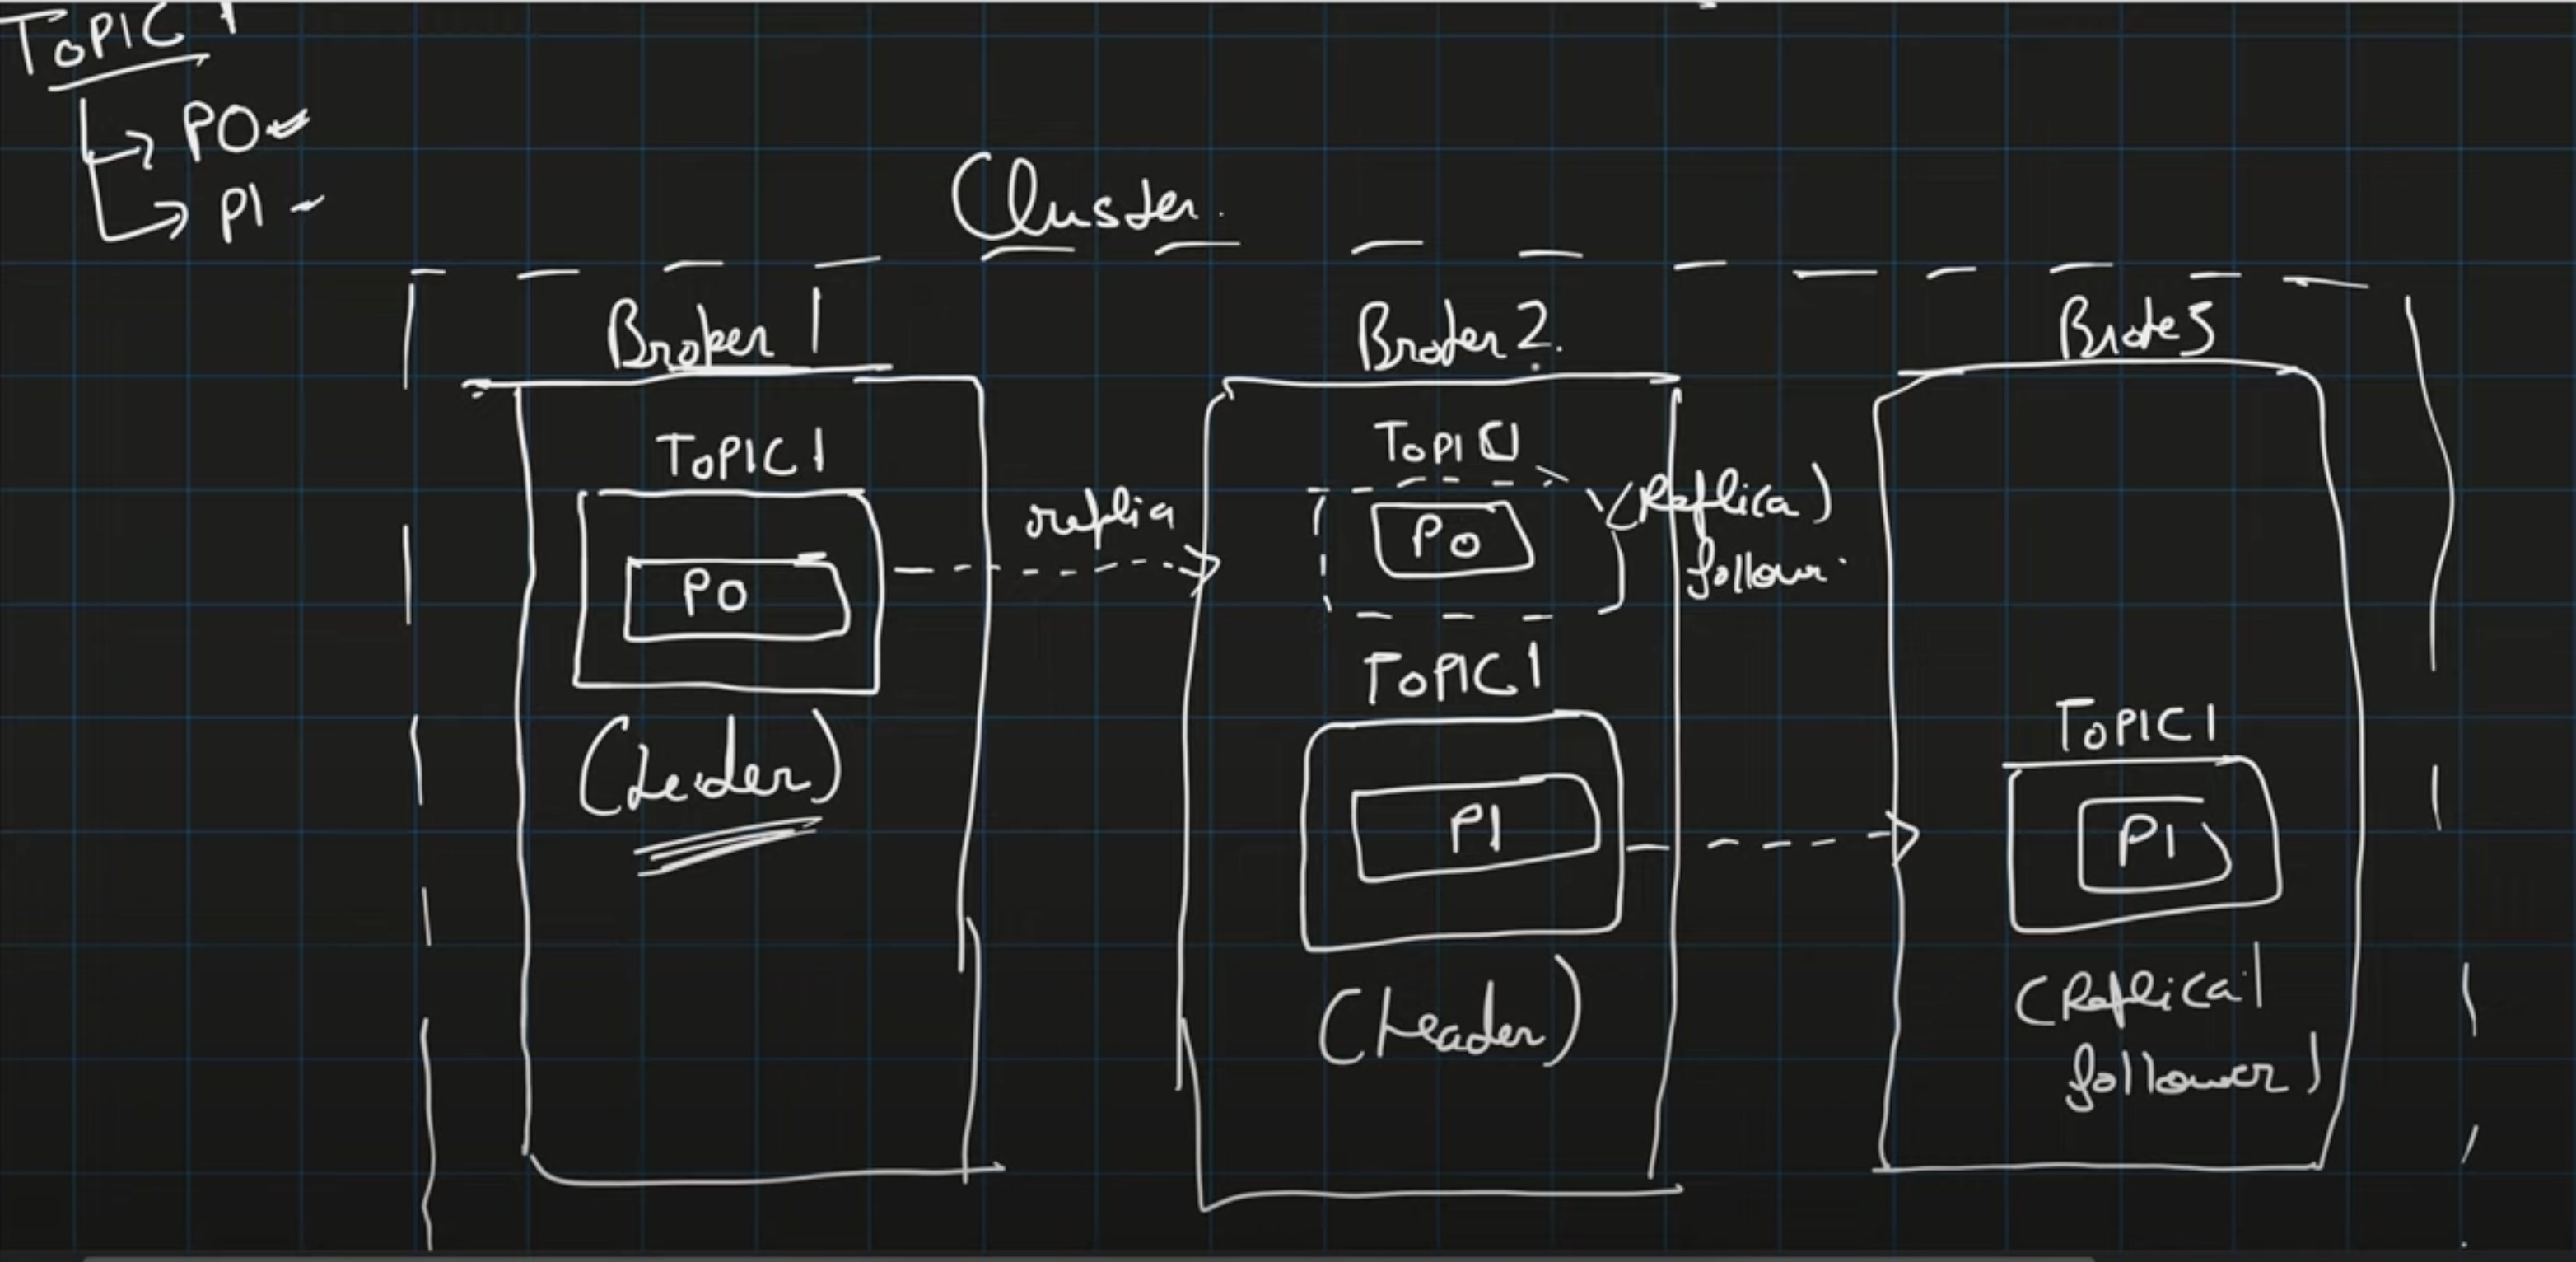 TOPIC 1
P0
P1
Cluster.
Broker 1
TOPIC1
P0
(Leader)
replia
Broker 2.
TOPIC1
P0
(Replica)
follower.
TOPIC1
P1
(Leader)
Broke3
TOPIC1
P1
(Replica1
follower)